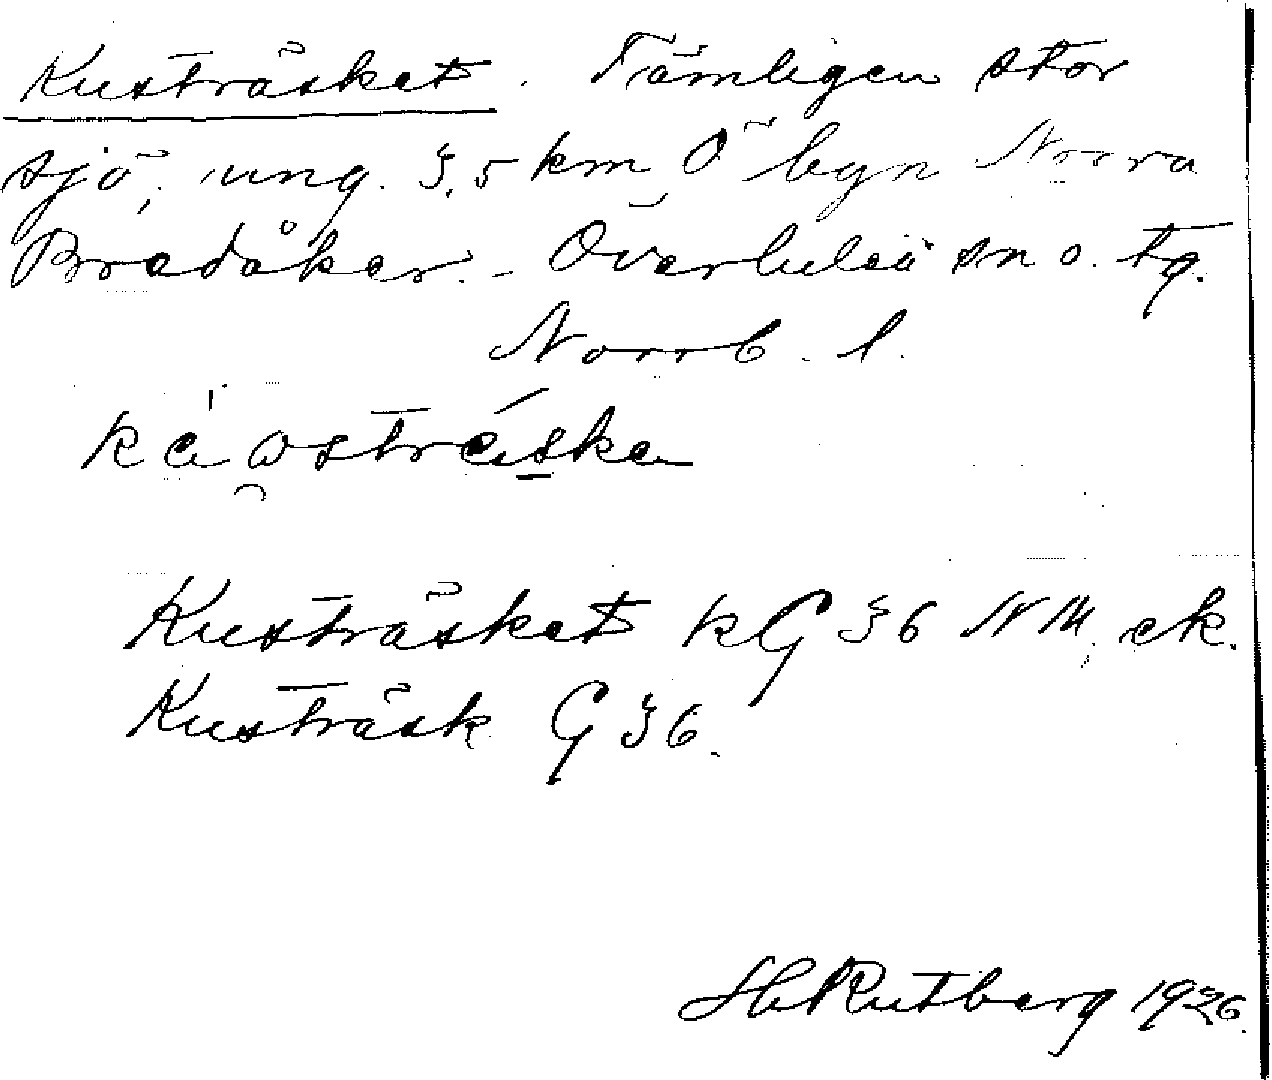 Kusträsket. Tämligen stor
sjö, ung. 3,5 km Ö byn Norra
Bredåker. - Överluleå sn o. tg.
Norrb. l.
Kusträsket kG 36 NM, ek.
Kusträsk G 36.
H. Rutberg 1926.